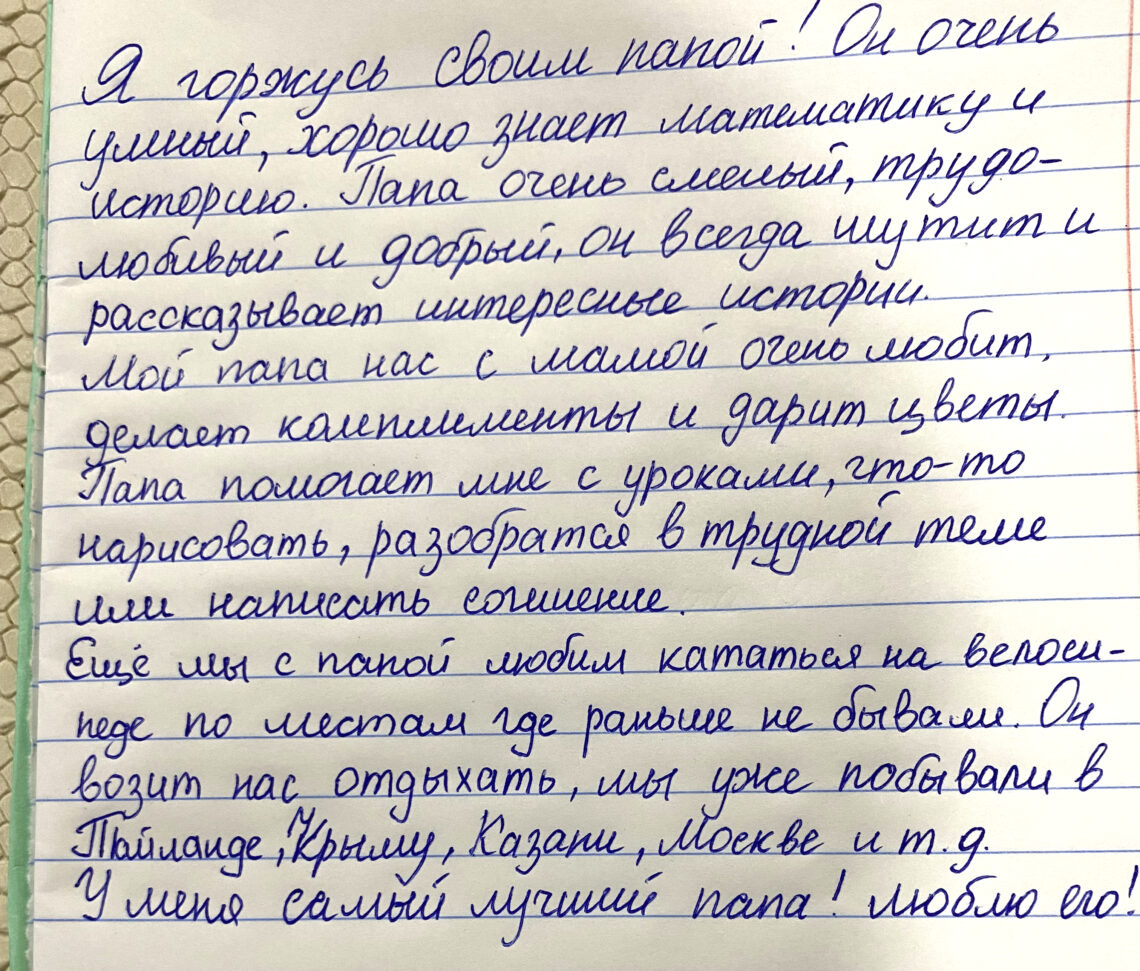 Я горжусь своим папой! Он очень
умный, хорошо знает математику и
историю. Папа очень смелый, трудо-
любивый и добрый, он всегда шутит и
рассказывает интересные истории.
Мой папа нас с мамой очень любит,
делает комплименты и дарит цветы.
Папа помогает мне с уроками, что-то
нарисовать, разобратся в трудной теме
или написать сочинение.
Ещё мы с папой любим кататься на велоси-
педе по местам где раньше не бывали. Он
возит нас отдыхать, мы уже побывали в
Тайланде, Крыму, Казани, Москве и т.д.
У меня самый лучший папа! люблю его!